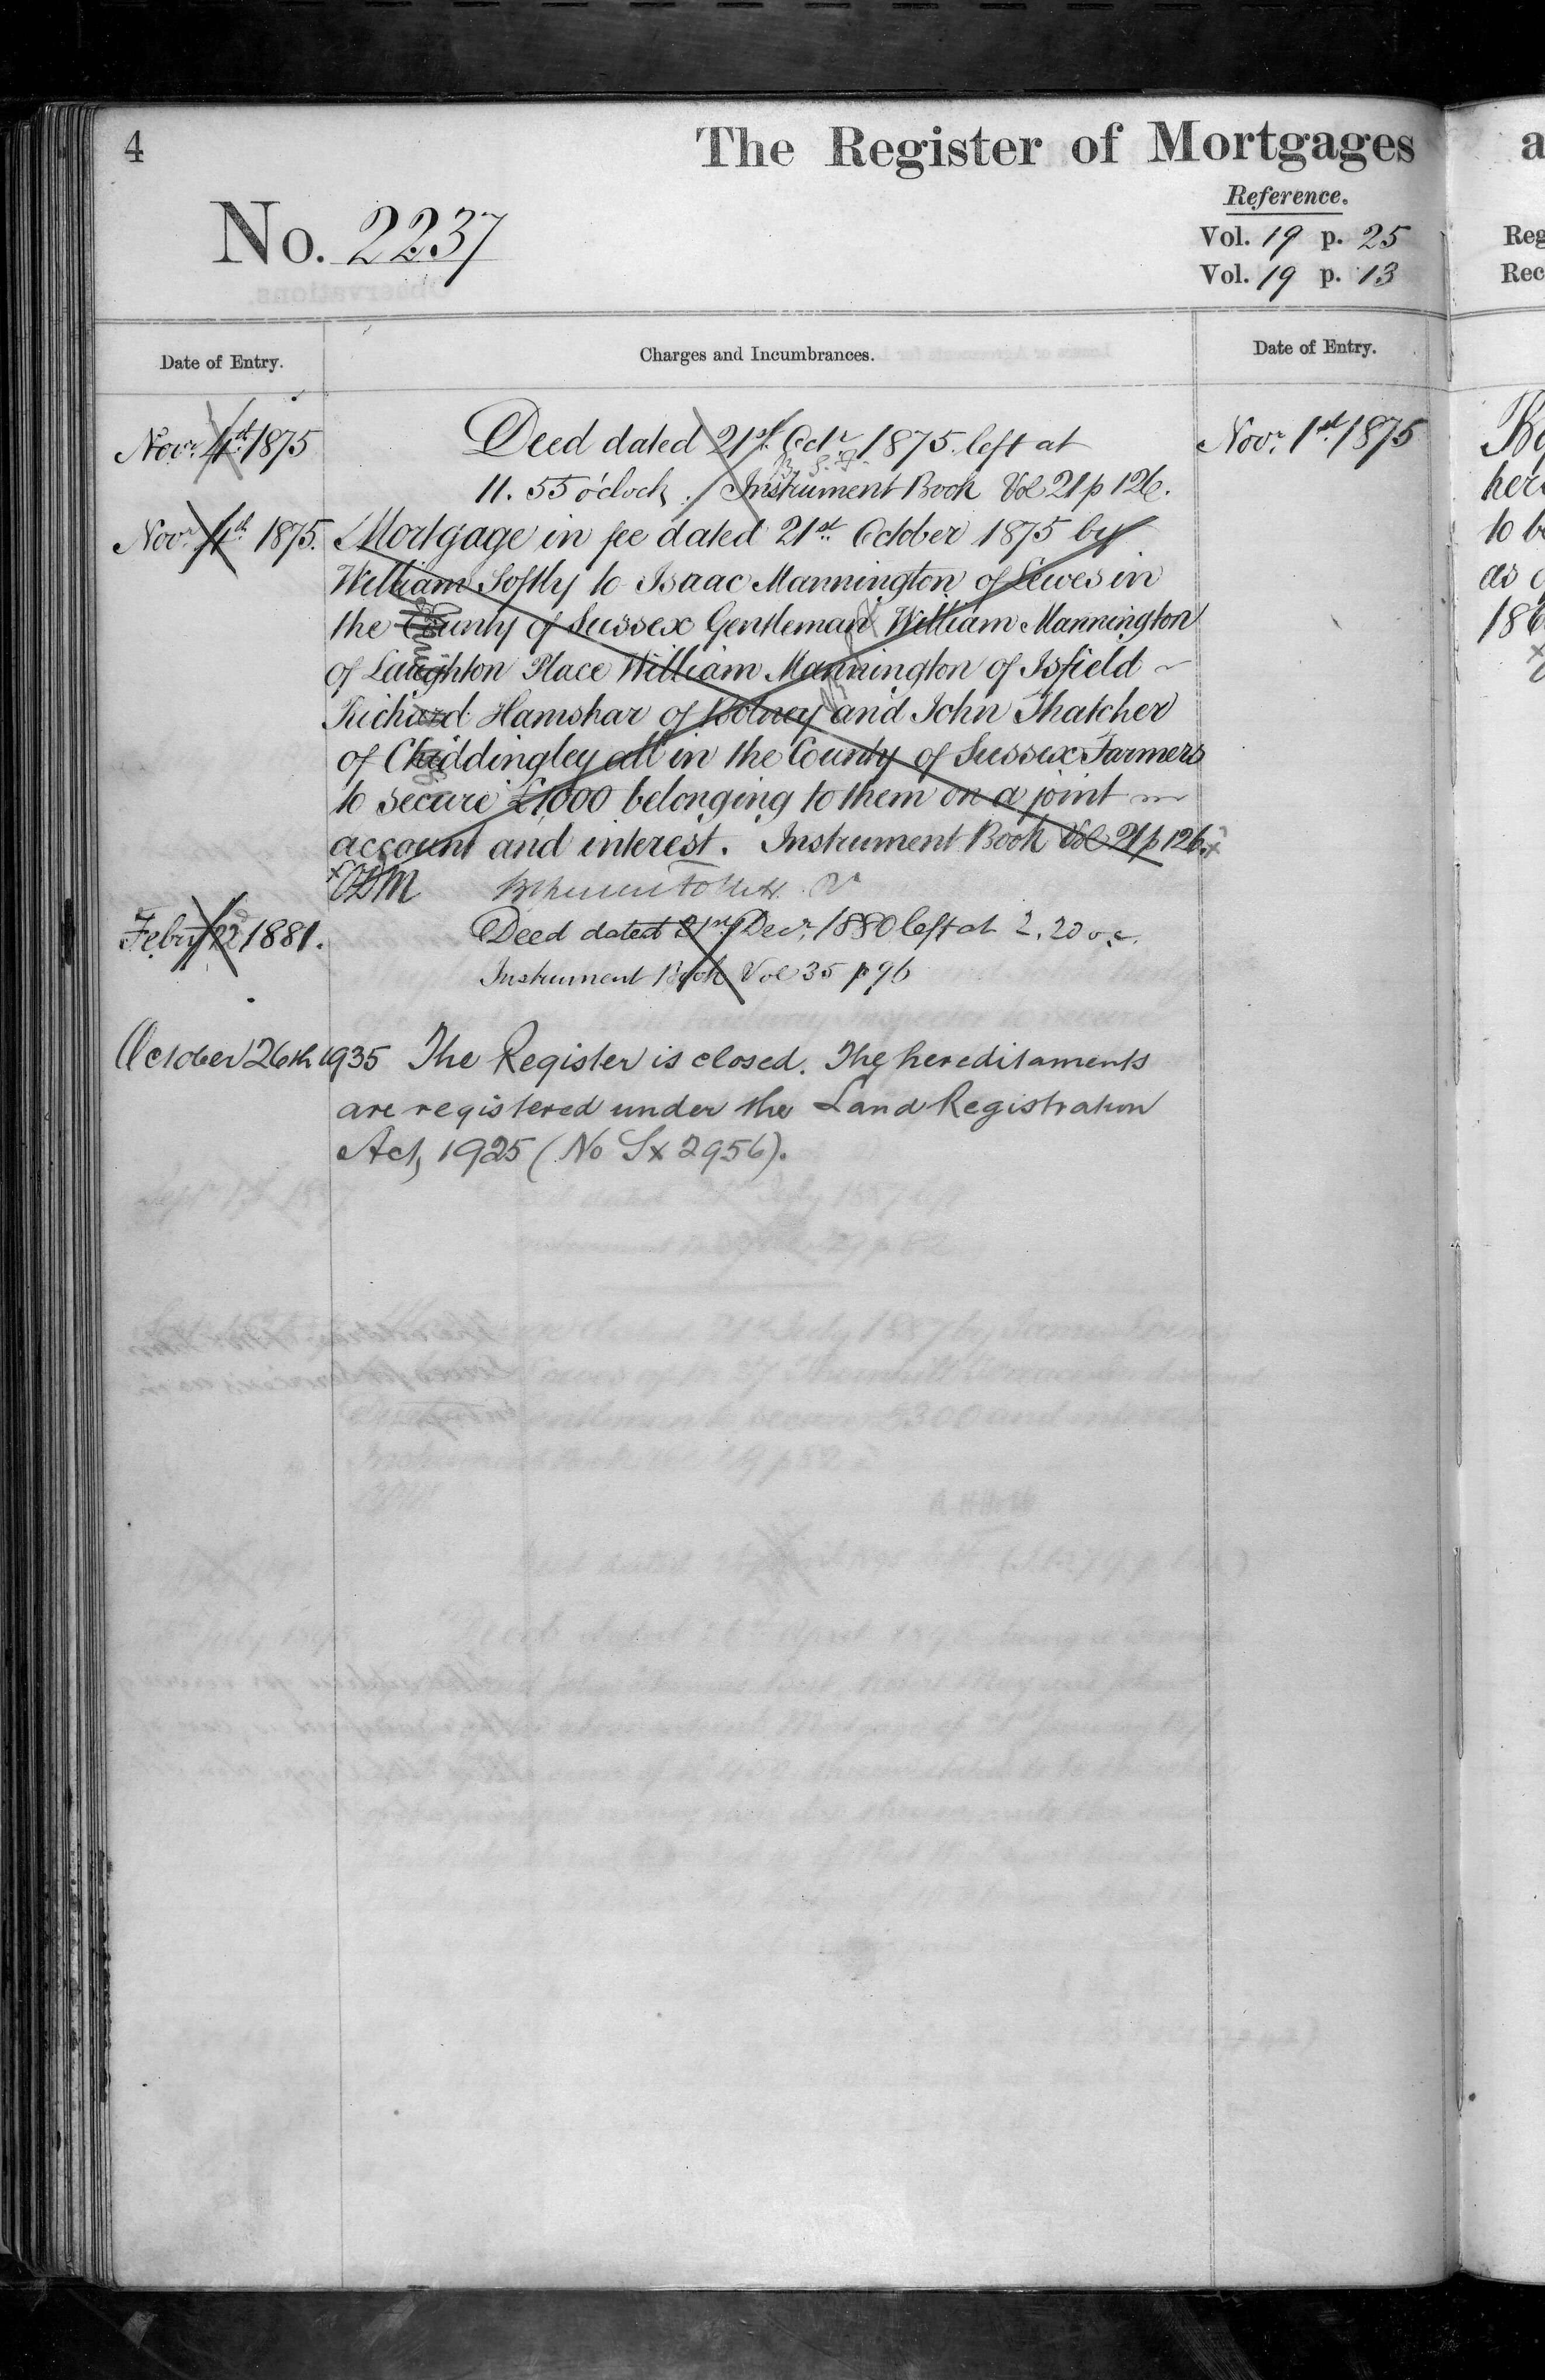 4
The Register of Mortgages
Reference.
No. 2237
Vol. 19 p. 25
Vol. 19 p. 13
Date of Entry.
Charges and Incumbrances.
Date of Entry.
Novr. 4th 1875
Deed dated 21st Octr 1875 left at
Novr. 1st 1875
11. 55 o'clock. Instrument Book Vol 21 p 126.
Novr 4th 1875.
Mortgage in fee dated 21st October 1875 by
William Softly to Isaac Mannington of Lewes in
the County of Sussex Gentleman William Mannington
of Laughton Place William Mannington of Isfield
Richard Hamshar of Bolney and John Thatcher
of Chiddingley all in the County of Sussex Farmers
to secure £1,000 belonging to them on a joint
account and interest. Instrument Book Vol 21 p 126.
Febry 22d 1881.
Deed dated 31st Decr. 1880 left at 2.20 o.c.
Instrument Book Vol 35 p 96
October 26th 1935
The Register is closed. The hereditaments
are registered under the Land Registration
Act, 1925 (No Sx 2956).
a
Reg
Rec
her
to be
as
186